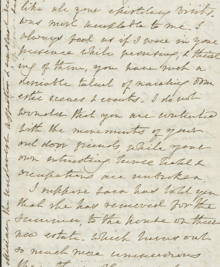 like all your epistolary visits
was most acceptable to me. I
always feel as if I were in your
presence while perusing, & think
ing of them, you have such a
desirable talent of narrating dom
estic scenes & events. I do not
wonder that you are
with the movements of your
out door friends while your
own interesting
occupations are unbroken.
I suppose has told you
that she has removed for the
summer, to the house on their
new estate, which turns out
so much more